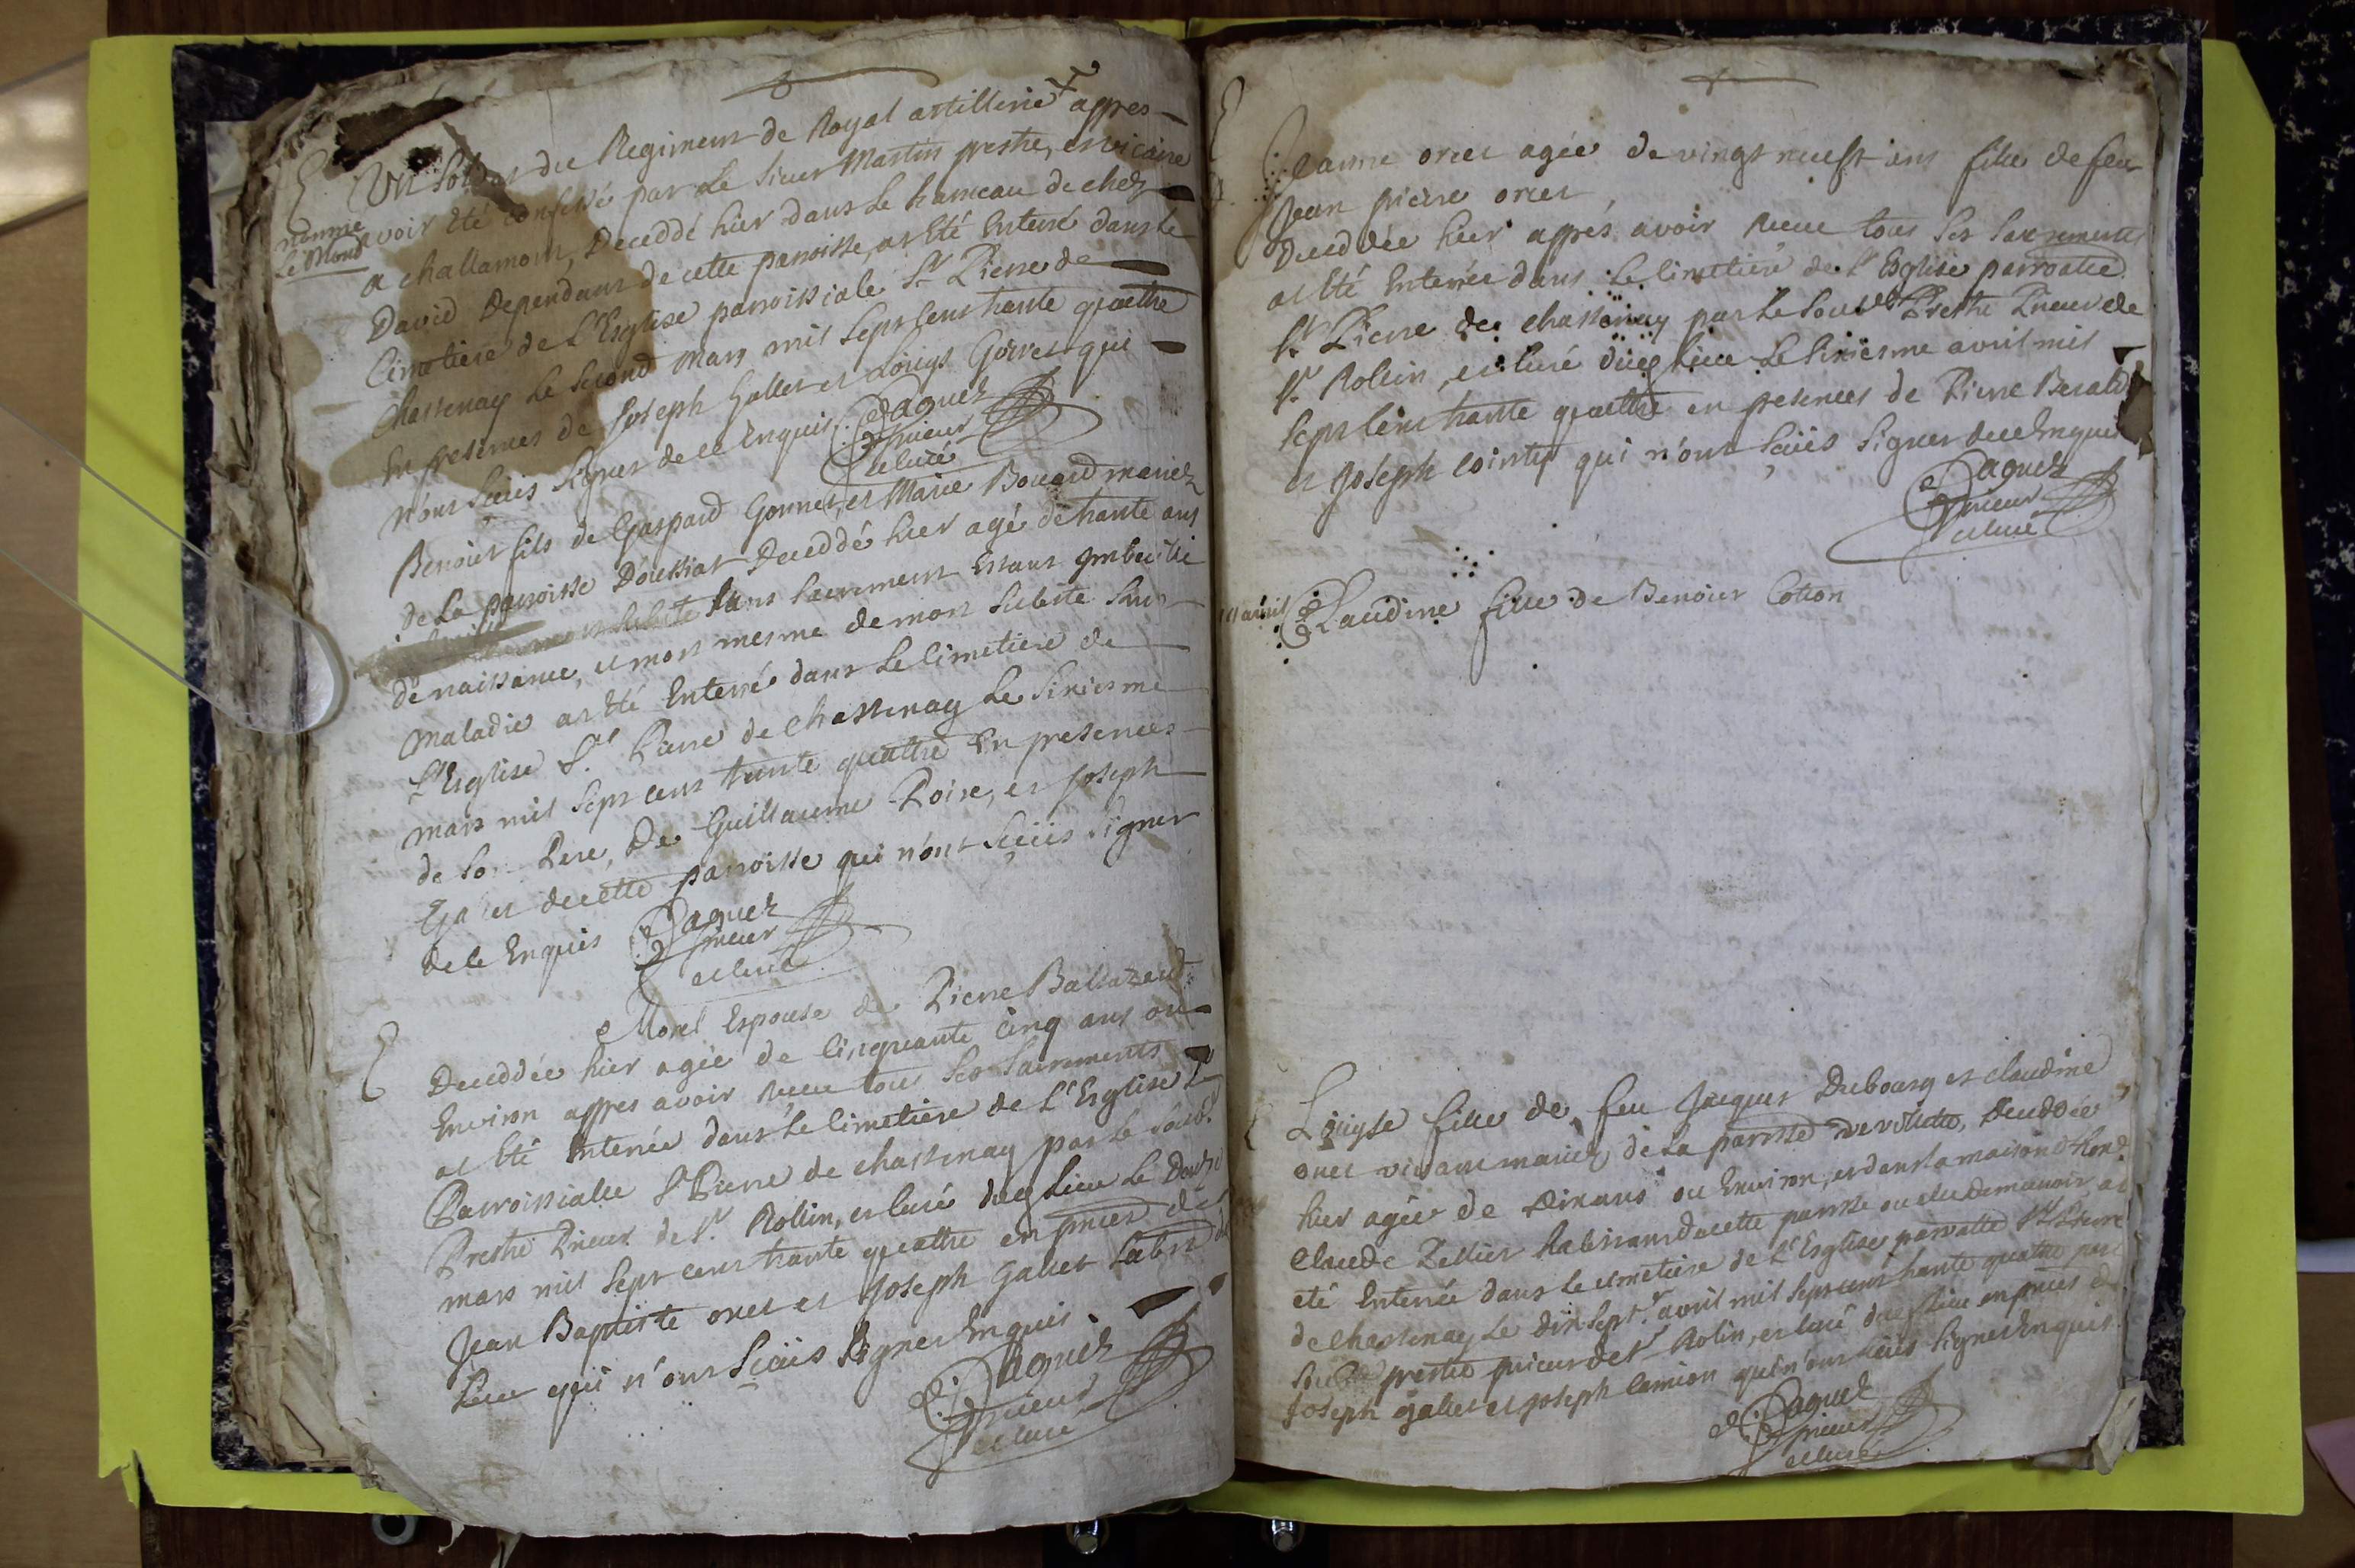 Un soldat du Regiment de Royal artillerie appres
nommé
Le Blond
avoir été confessé par le sieur Martin prestre, et vicaire
a challamont, Deceddé hier dans le hameau de chez
David Dependant de cette parroisse, at été Enterré dans le
Cimetiere de L'Esglise parroissiale St Pierre de
Chastenay le second Mars mil sept cent trante quattre
En presences de Joseph Gallet et Louÿs Gonnet qui
n'ont sceüs signer de ce Enquis. Paquez
prieur
et curé
Benoist fils de Gaspard Gonnet, et Marie Bouard mariez
de La parroisse Doussiat Deceddé hier agé de trante ans
sans sacrement Estant imbecille
de naissance, et mort mesme de mort subitte sans
maladie at été Enterré dans le Cimetiere de
L'Esglise St Pierre de chastenay le sixiesme
mars mil sept cent trante quattre En presences
de son Pere, De Guillaume Poixe, et Joseph
Galiet de cette parroisse qui n'ont sceüs signer
de ce Enquis Paquez
prieur
et curé
Morel Espouse de Pierre Baltazard
Deceddée hier agée de Cinquante cinq ans ou
Environ appres avoir receu tous ses sacrements
at été Enterrée dans le Cimetiere de L'Esglise
Parroissialle St Pierre de chastenay par le soub.
Prestre Prieur de St Rollin, et curé dud. lieu le Douze
mars mil sept cent trante quattre en pnces de
Jean Baptiste oret et Joseph galiet habts du
Lieu qui n'ont sceüs signer Enquis
Paquez
prieur
et curé
Jeanne orset agée de vingt neuf ans fille de feu
Jean pierre orset
Deceddée hier appres avoir receu tous ses sacrements
at été Enterrée dans le Cimetiere de L'Esglise parroalle
St Pierre de chastenay par le soub. Prestre Prieur de
St Rollin, et curé dud. lieu le sixiesme avril mil
sept cent trante quattre en presences de Pierre Berald
et Joseph cointy qui n'ont sceüs signer de ce Enquis
Paquez
prieur
et curé
11 avril Claudine fille de Benoist Cotton
Loüyse fille de feu Jacques Dubourg et claudine
oret vivant mariez de La parrsse de villette, Deceddée
hier agée de dix ans ou Environ, et dans la maison d'hon.
claude Tellier habitant de cette parrsse ou elle demeuroit, at
été Enterrée dans le cimetiere de L'Esglise parroalle St Pierre
de chastenay le dix sept. avril mil sept cent trante quattre par
soub. prestre prieur de St Rolin, et curé dud. lieu en pnces de
Joseph galiet et Joseph camion qui n'ont sceüs signer Enquis
Paquez
prieur
et curé